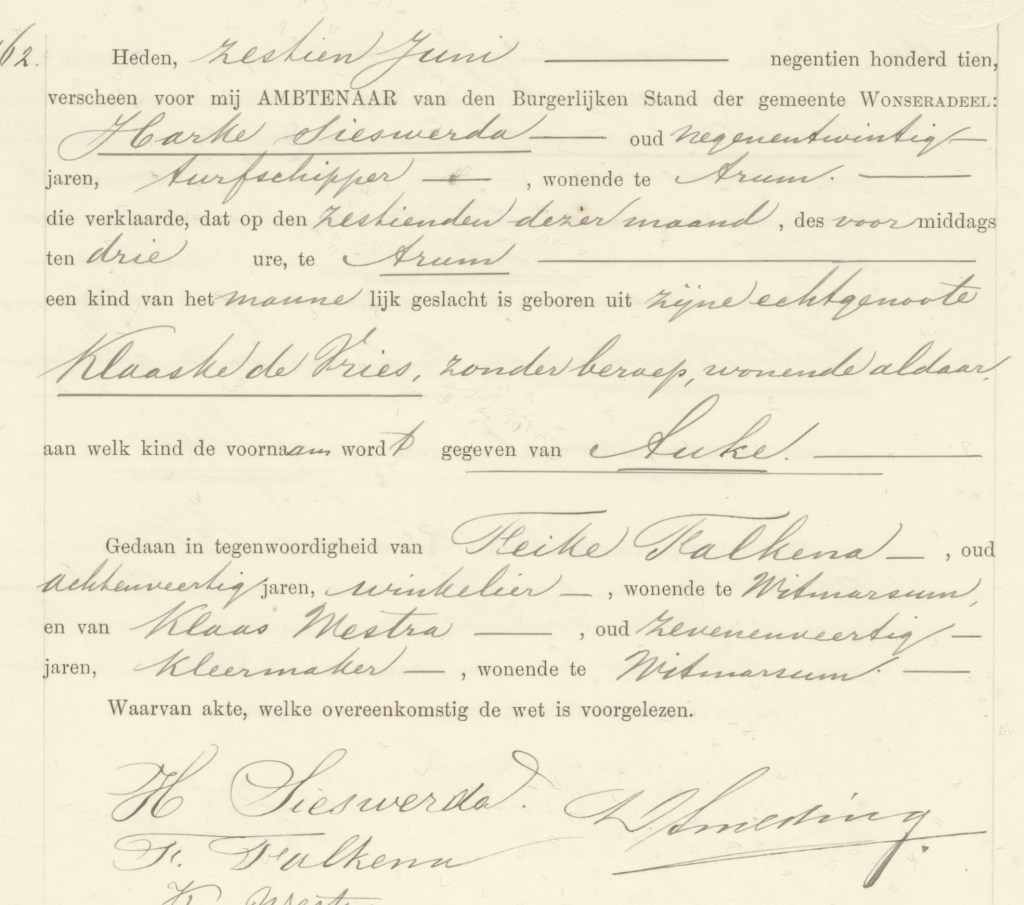 62.
Heden, zestien Juni negentien honderd tien,
verscheen voor mij AMBTENAAR van den Burgerlijken Stand der gemeente WONSERADEEL:
Harke Sieswerda oud negenentwintig
jaren, turfschipper, wonende te Arum.
die verklaarde, dat op den zestienden dezer maand, des voormiddags
ten drie ure, te Arum
een kind van het mannelijk geslacht is geboren uit zijne echtgenoote
Klaaske de Vries, zonder beroep, wonende aldaar,
aan welk kind de voornaam wordt gegeven van Auke.
Gedaan in tegenwoordigheid van Feike Falkena, oud
achtenveertig jaren, winkelier, wonende te Witmarsum,
en van Klaas Westra, oud zevenenveertig
jaren, kleermaker, wonende te Witmarsum.
Waarvan akte, welke overeenkomstig de wet is voorgelezen.
H Sieswerda. Smeding.
F. Falkena
K Westra